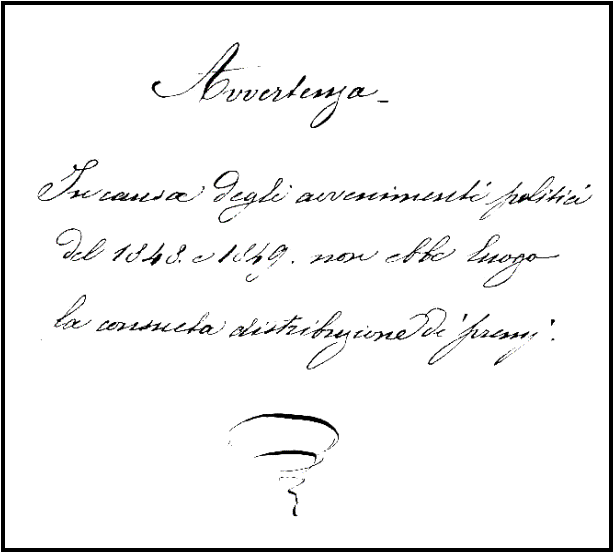 Avvertenza_
In causa degli avvenimenti politici
del 1848. e 1849. non ebbe luogo
la consueta distribuzione di premj.